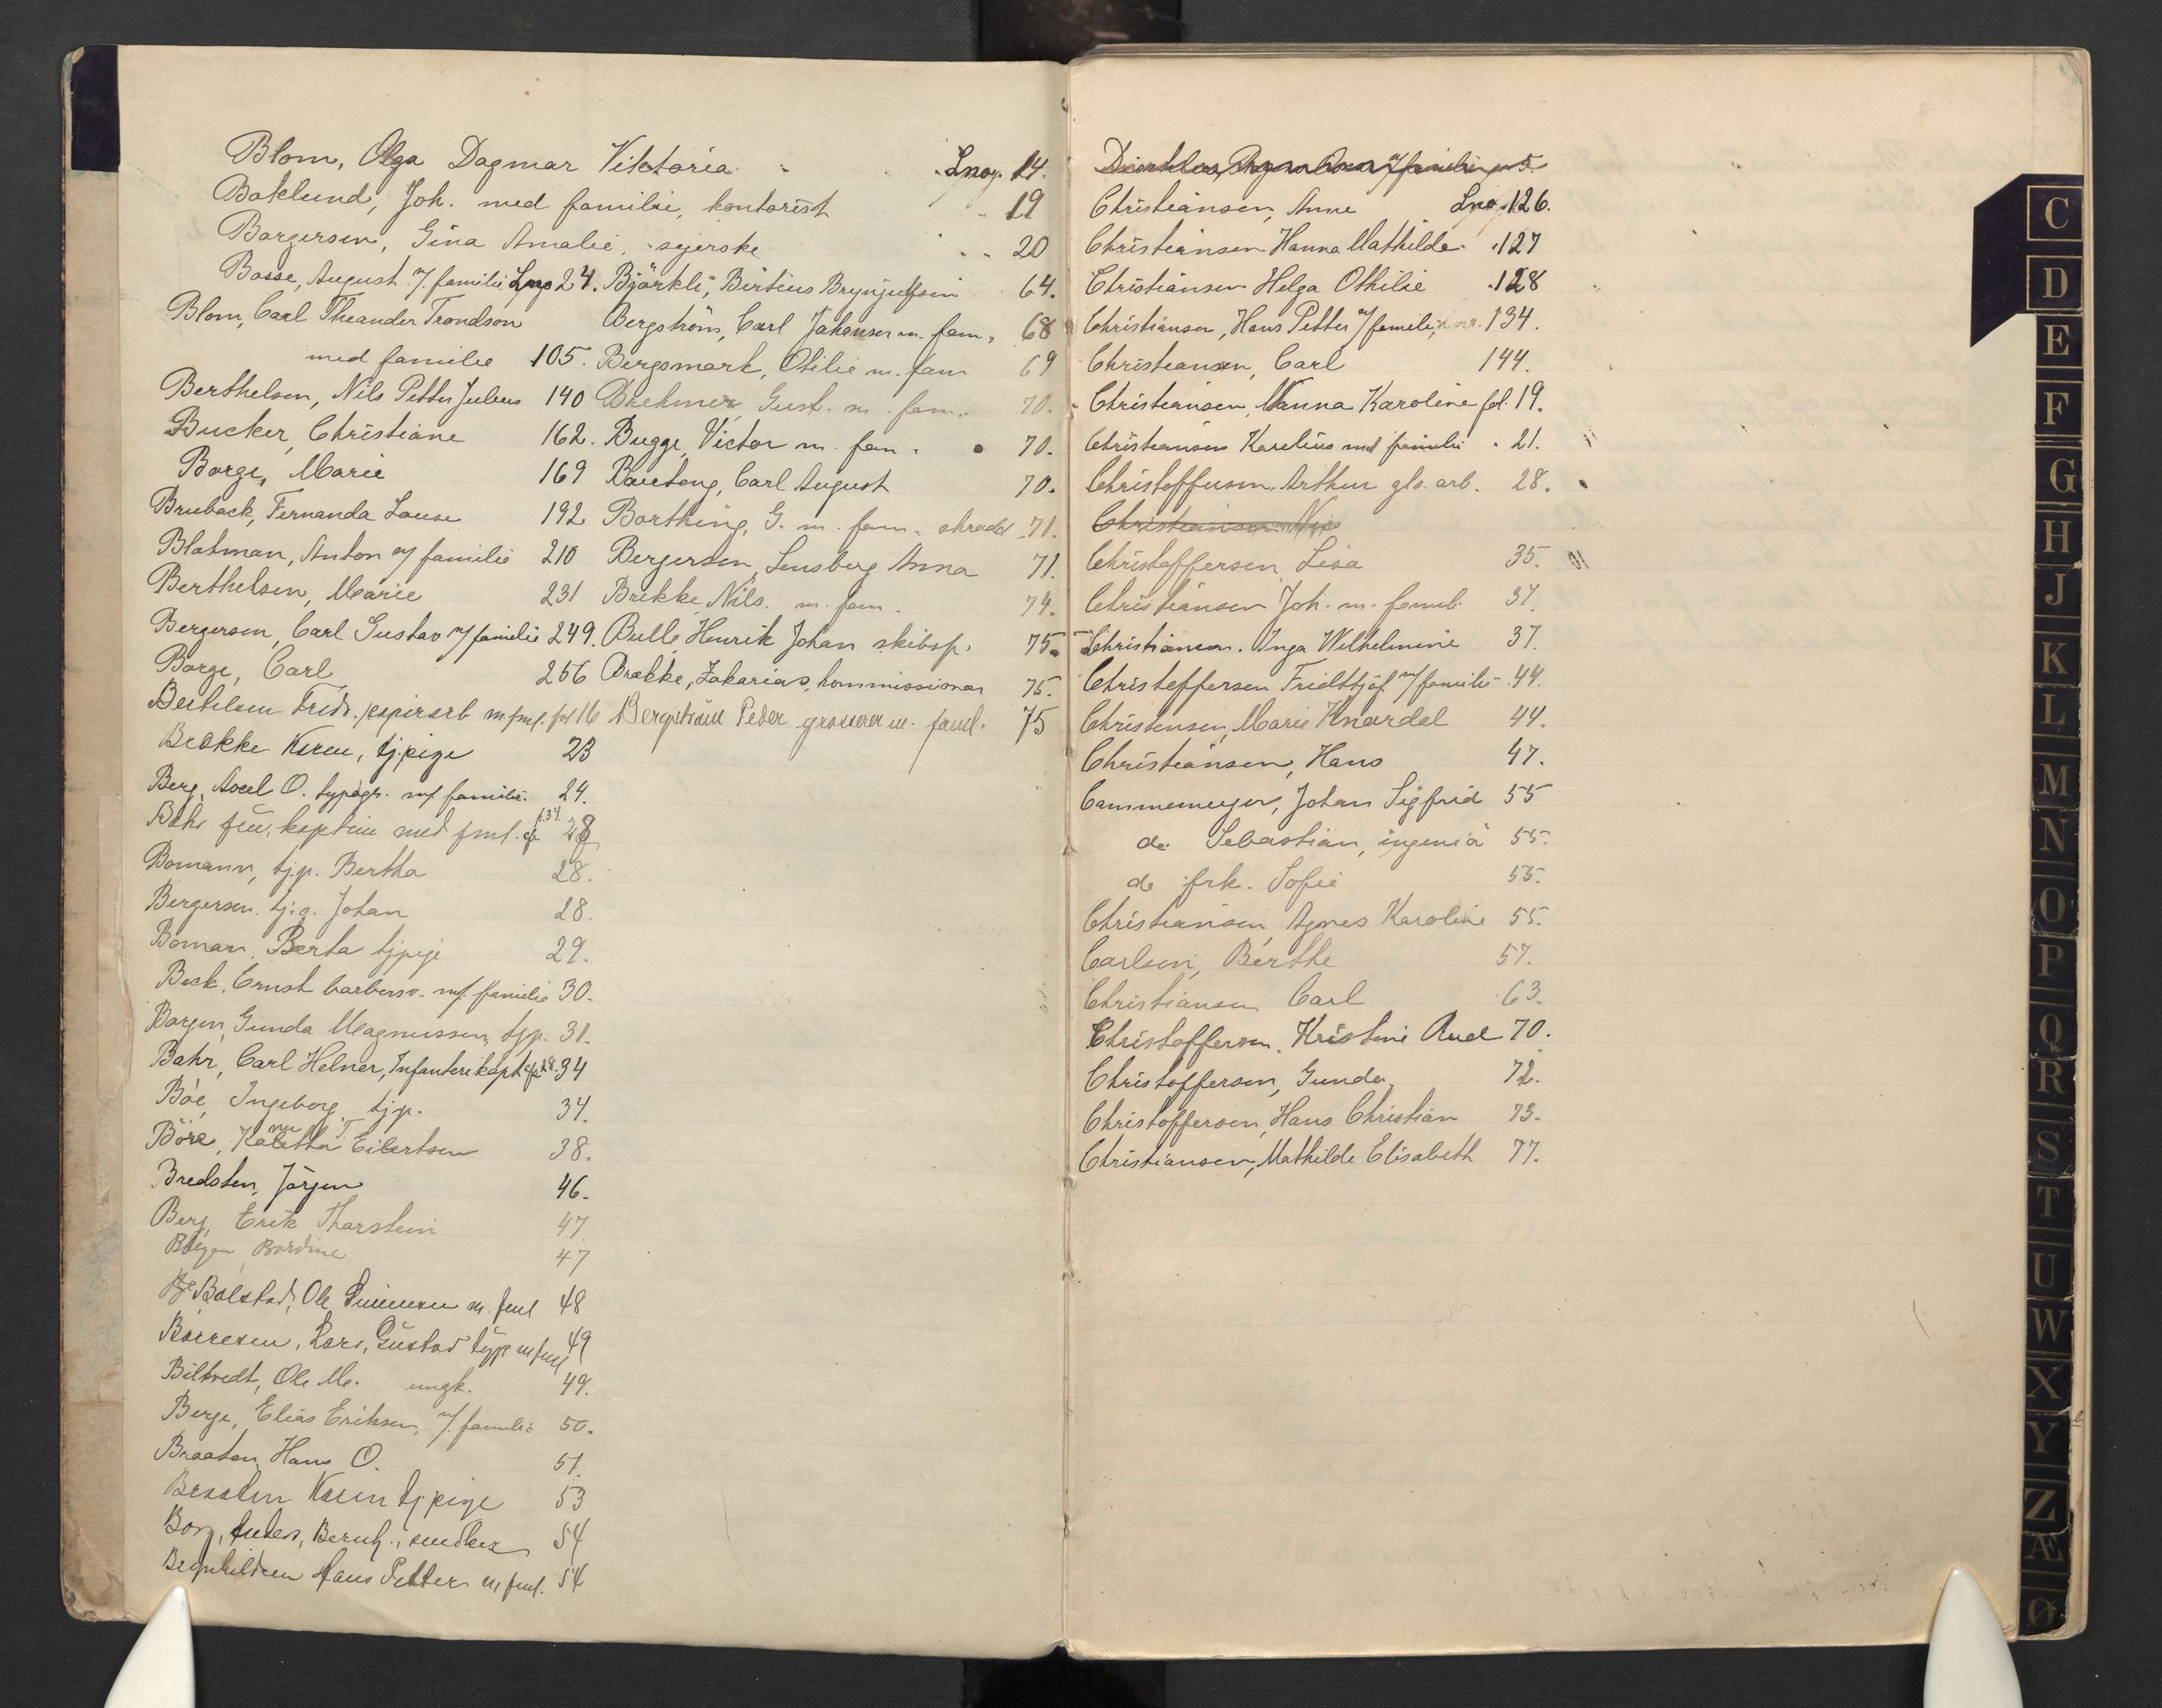 Blom, Olga Dagmar Viktoria - Lnog. 14.
Boklund, Joh. med familie, kontorist 19
Borgersen, Gina Amalie, syerske 20
Bosse, August m/ familie Lnog 24.
Blom, Carl Theander Trondson
med familie 105.
Berthelsen, Nils Petter Julius 140
Bucker, Christiane 162.
Borge, Marie 169
Bruback, Fernanda Louse 192
Blatman, Anton m/ familie 210
Berthelsen, Marie 231
Bergersen, Carl Gustav m/ familie 249.
Borge, Carl 256
Berthelsen Fredr. papirarb m. fml. fol 16
Brække Karen, tjpige 23
Berg, Axel O. typogr. m/ familie. 24.
Bahr jun, kaptein med fml. cfr f.34 28
Bomann, tjp. Bertha 28.
Bergersen. tj.g. Johan 28.
Boman, Berta tjpige 29.
Beck, Ernst barbersv. m/. familie 30.
Borgen, Gunda Magnussen, tjp. 31.
Bahr, Carl Helner, Infanterikapt cfr 28. 34
Boe, Ingeborg tjp. 34.
Böre, Eilertsen 38.
Bredsten, Jörgen 46.
Berg, Erik Tharstein 47.
Bordine 47
Bolstad, Ole m. fml 48
Börresen, Lars, Gustav typ m fml 49
Biltvedt, Ole M. ungk. 49.
Berge, Elias Eriksen, m/. familie 50.
Braaten, Hans O. 51.
Braaten Karen tjpige 53
Borg, Anders, Bernh., snedker 54
Hans Petter m fml. 54
Björkli, Birtius Brynjulfsen 64.
Bergström, Carl Johansen m. fam. 68
Bergsmark, Otilie m. fam 69
Brehmer, Gust. m. fam. 70.
Bugge, Victor m. fam. 70.
Bauteng, Carl August 70.
Borthing, G. m. fam. skrædd. 71.
Bergersen, Lensberg Anna 71.
Brekke, Nils. m. fam. 74.
Bull, Henrik Johan skibsf. 75.
Brække, Zakarias, kommissionær 75.
Bergström Peder grosserer m. faml. 75
Christiansen, Anne Lno. 126.
Christiansen Hanna Mathilde 127
Christiansen Helga Othilie 128
Christiansen, Hans Petter m/ familie, 134.
Christiansen, Carl 144.
Christiansen, Nanna Karoline fol. 19.
Christiansen Karelius med familie 21.
Christoffersen, Arthur gls. arb. 28.
Christiansen Nils
Christoffersen, Lisa 35.
Christiansen Joh. m. famili 37.
Christiansen. Inga Wilhelmine 37.
Christoffersen Fridttjof m/ familie 44.
Christensen, Marie Knardal 44.
Christiansen, Hans 47.
Cammemeyer, Johan Sigfrid 55
do Sebastian, ingeniö 55.
do frk. Sofie 55.
Christiansen, Agnes Karoline 55.
Carlsen, Berthe 57.
Christiansen Carl 63.
Christoffersen, Kristine Aud 70.
Christoffersen, Gunda 72.
Christoffersen, Hans Christian 73.
Christiansen, Mathilde Elisabeth 77.
C
D
E
F
G
H
J
K
L
M
N
O
P
Q
R
S
T
U
W
X
Y
Z
Æ
Ø